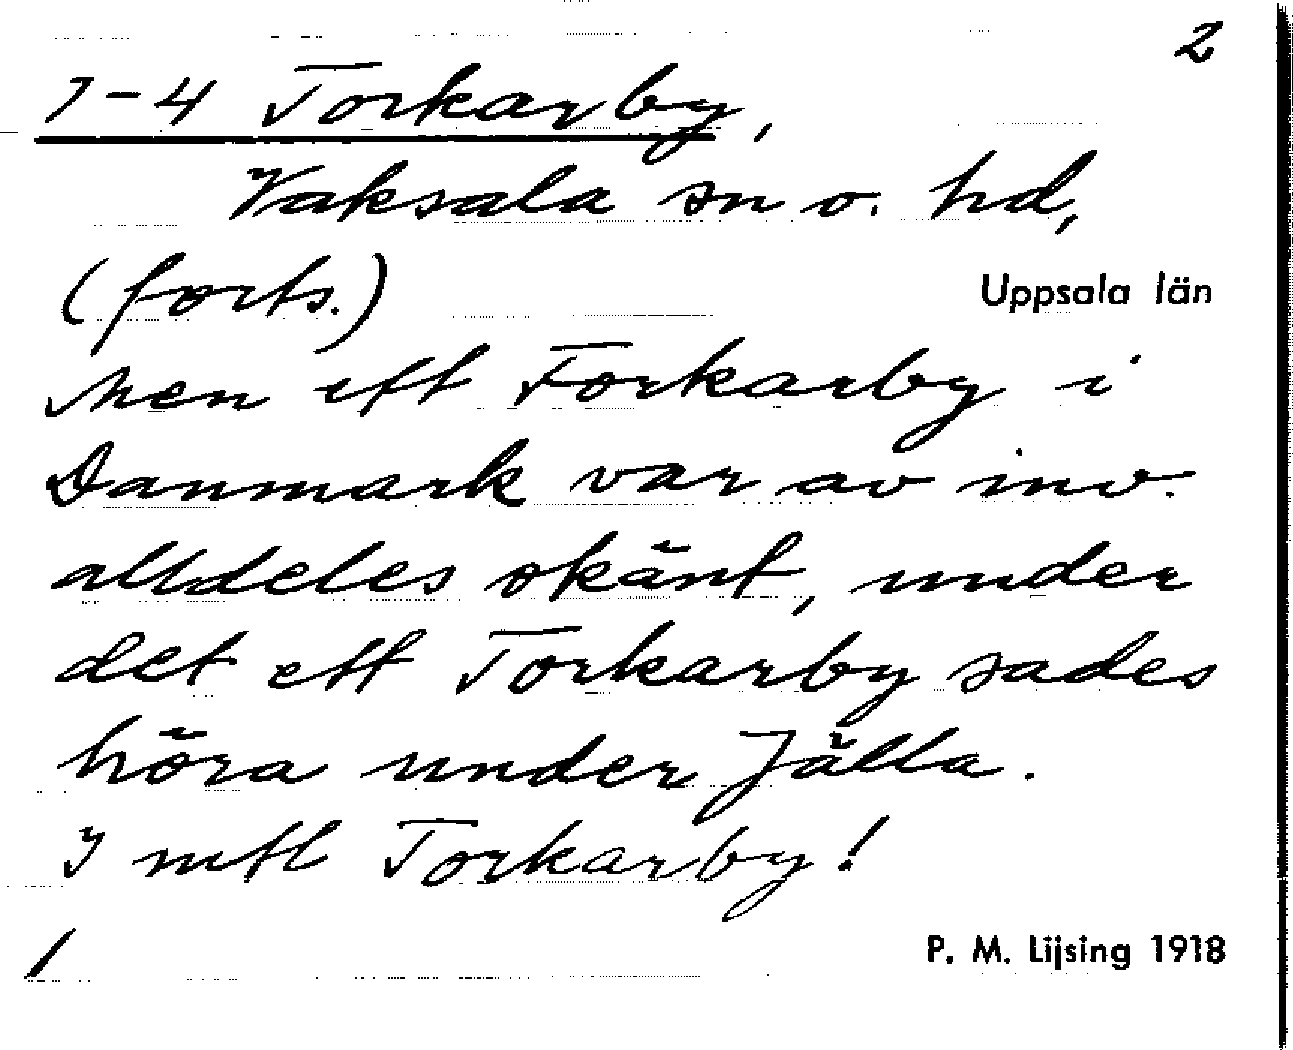 2
1-4 Torkarby,
Vaksala sn o. hd,
(forts.)
Uppsala län
Men ett Forkarby i
Danmark var av inv.
alldeles okänt, under
det ett Torkarby sades
höra under Jälla.
I mtl Torkarby!
P. M. Lijsing 1918